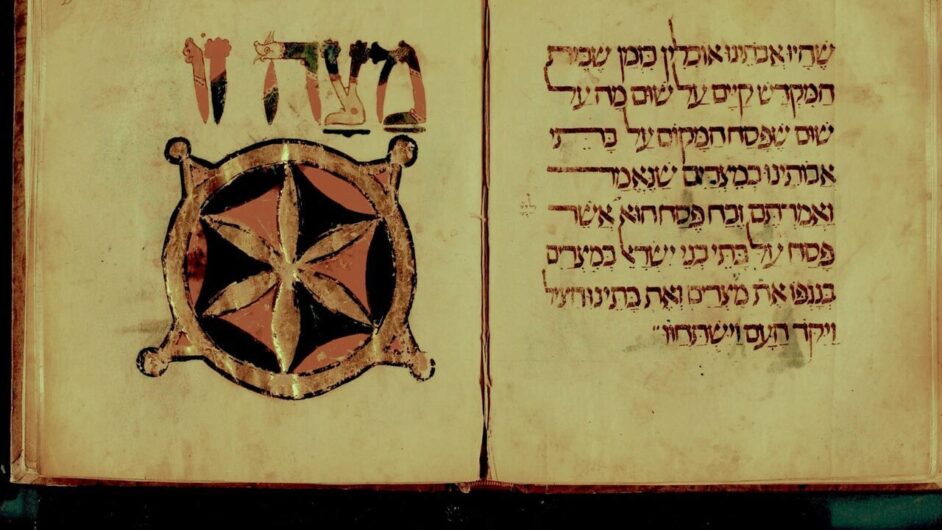 שֶׁהָיוּ אֲבֹתֵינוּ אוכלין בזמן שבית
המקדש קיים על שום מה על
שום שפסח המקום על בתי
אבותינו במצרים שנאמר
ואמרתם זבח פסח הוא אשר
פסח על בתי בני ישראל במצרים
בנגפו את מצרים ואת בתינו הציל
ויקד העם וישתחוו
מצה זו